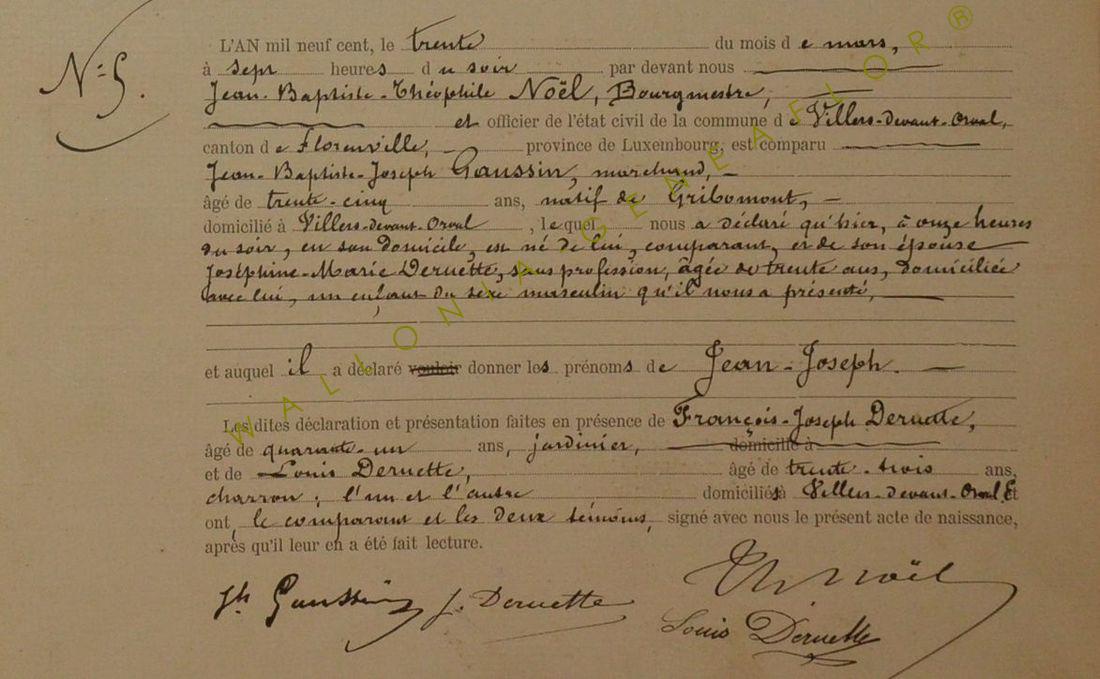 N:5.
L'AN mil neuf cent, le trente du mois de mars,
à sept heures du soir par devant nous
Jean-Baptiste-Théophile Noël, Bourgmestre,
et officier de l'état civil de la commune de Villers-devant-Orval,
canton de Florenville, province de Luxembourg, est comparu
Jean-Baptiste-Joseph Gaussin, marchand,
âgé de trente-cinq ans, natif de Gribomont,
domicilié à Villers-devant-Orval, lequel nous a déclaré qu'hier, à onze heures
du soir, en son domicile, est né de lui, comparant, et de son épouse
Joséphine-Marie Deruette, sans profession, âgée de trente ans, domiciliée
avec lui, un enfant du sexe masculin qu'il nous a présenté,
et auquel il a déclaré vouloir donner les prénoms de Jean-Joseph.
Les dites déclaration et présentation faites en présence de François-Joseph Deruette,
âgé de quarante-un ans, jardinier, domicilié à
et de Louis Deruette, âgé de trente-trois ans,
charron; l'un et l'autre domiciliés à Villers-devant-Orval Et
ont, le comparant et les deux témoins, signé avec nous le présent acte de naissance,
après qu'il leur en a été fait lecture.
Jh Gaussin J. Deruette Th Noël
Louis Deruette
WALLONIA GENEAFLOR®